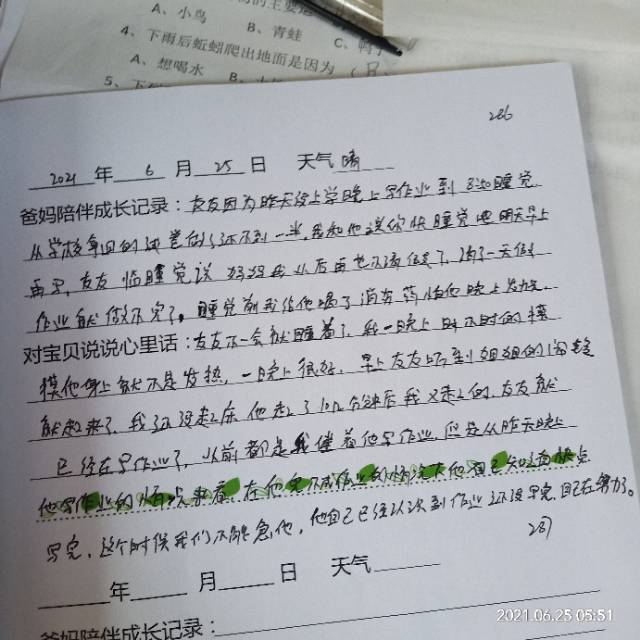 A、小鸟 B、青蛙 C、鸭子
4、下雨后蚯蚓爬出地面是因为（B）
A、想喝水 B、
5、
286
2021年6月25日 天气晴
爸妈陪伴成长记录：友友因为昨天没上学晚上写作业到 睡觉
从学校拿回的试卷做了还不到一半,我和他说你快睡觉吧明天早上
再写,友友临睡觉说妈妈我以后再也不请假了,请了一天假
作业就做不完了。睡觉前我给他喝了消炎药怕他晚上发烧。
对宝贝说说心里话：友友不一会就睡着了,我一晚上时不时的摸
摸他身上就不是发热,一晚上很好,早上友友听到姐姐的闹铃
就起来了,我还没起床他起了10几分钟后我又起的,友友就
已经在写作业了,以前都是我催着他写作业,但是从昨天晚上
他写作业的情况来看,在他完不成作业的情况下他自己知道快点
写完,这个时候我们不能急他,他自己已经认识到作业还没写完,自己在努力了。
287
年 月 日 天气
爸妈陪伴成长记录：
2021.06.25 05:51